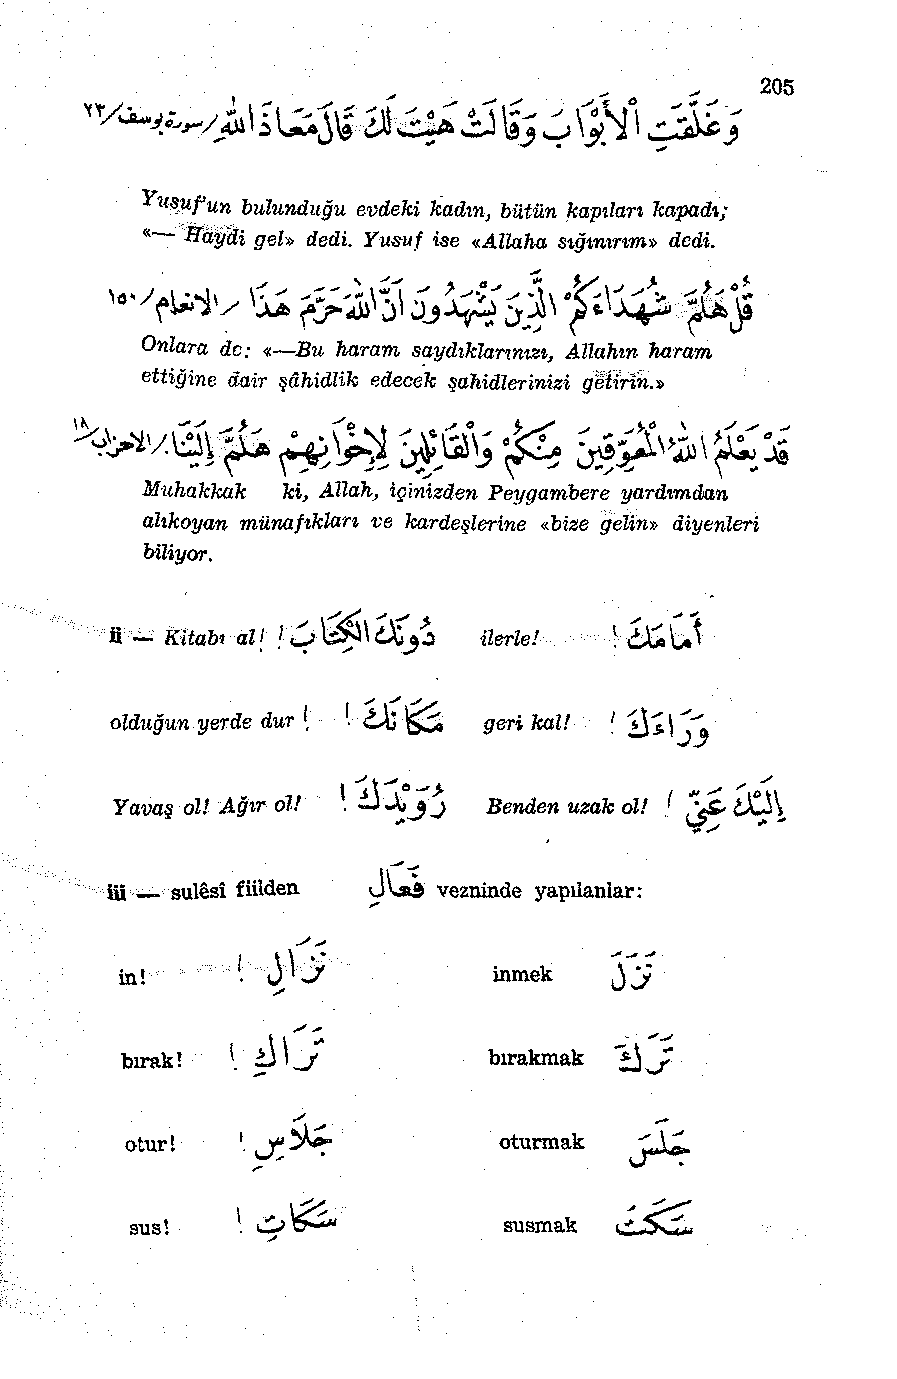 205
وَغَلَّقَتِ الْأَبْوَابَ وَقَالَتْ هَيْتَ لَكَ قَالَ مَعَاذَ اللّٰهِ / سورة يوسف / ٢٣
Yusuf'un bulunduğu evdeki kadın, bütün kapıları kapadı;
«— Haydi gel» dedi. Yusuf ise «Allaha sığınırım» dedi.
قُلْ هَلُمَّ شُهَدَاءَكُمُ الَّذِينَ يَشْهَدُونَ اَنَّ اللّٰهَ حَرَّمَ هَذَا / الانعام / ١٥٠
Onlara de: «—Bu haram saydıklarınızı, Allahın haram
ettiğine dair şâhidlik edecek şahidlerinizi getirin.»
قَدْ يَعْلَمُ اللّٰهُ الْمُعَوِّقِينَ مِنْكُمْ وَالْقَائِلِينَ لِإِخْوَانِهِمْ هَلُمَّ إِلَيْنَا / الاحزاب / ١٨
Muhakkak ki, Allah, içinizden Peygambere yardımdan
alıkoyan münafıkları ve kardeşlerine «bize gelin» diyenleri
biliyor.
ii — Kitabı al! دُونَكَ الْكِتَابَ ! ilerle! أَمَامَكَ !
olduğun yerde dur ! مَكَانَكَ ! geri kal! وَرَاءَكَ !
Yavaş ol! Ağır ol! رُوَيْدَكَ ! Benden uzak ol! إِلَيْكَ عَنِّي !
iii — sulêsî fiilden فَعَالِ vezninde yapılanlar:
in! نَزَالِ ! inmek نَزَلَ
bırak! تَرَاكِ ! bırakmak تَرَكَ
otur! جَلَاسِ ! oturmak جَلَسَ
sus! سَكَاتِ ! susmak سَكَتَ